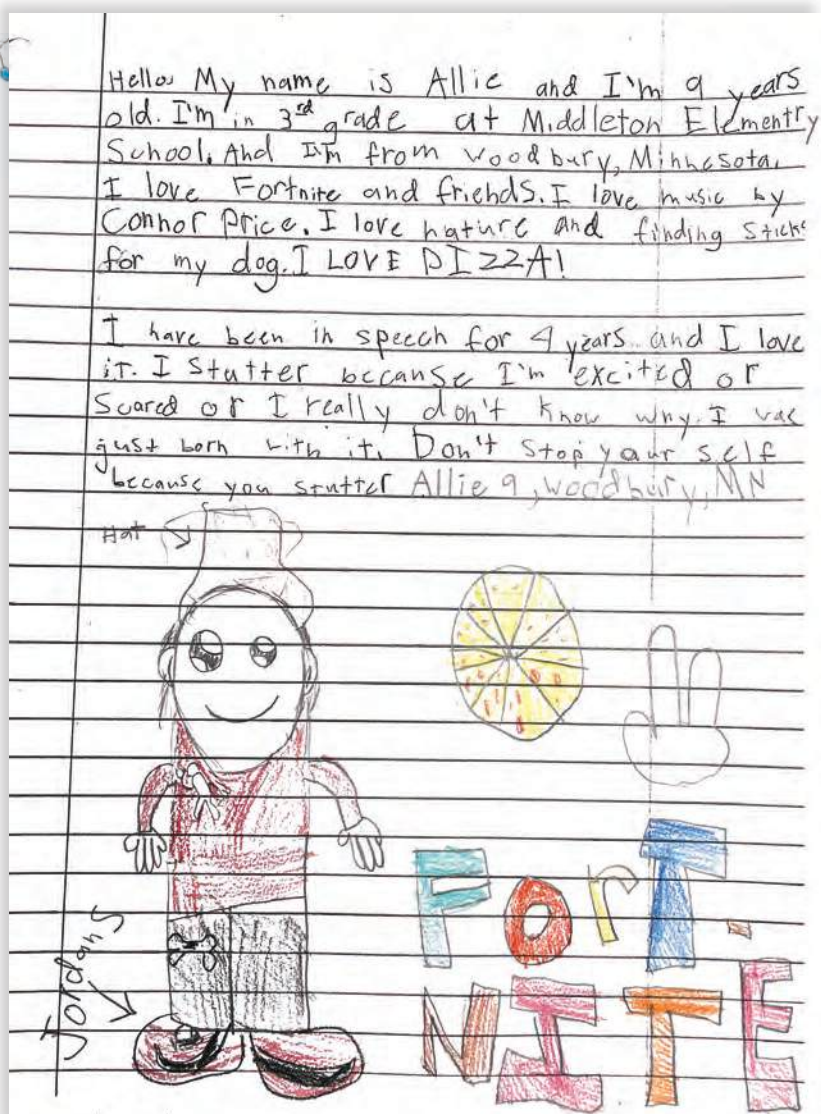 Hello. My name is Allie and I'm 9 years
old. I'm in 3rd grade at Middleton Elementry
School. And I'm from Woodbury, Minnesota.
I love Fortnite and friends. I love music by
Connor Price. I love nature and finding sticks
for my dog. I LOVE PIZZA!
I have been in speech for 4 years and I love
it. I stutter because I'm excited or
scared or I really don't know why. I was
just born with it. Don't stop your self
because you stutter Allie 9, Woodbury, MN
Hat
Jordans
ForT-
NITE